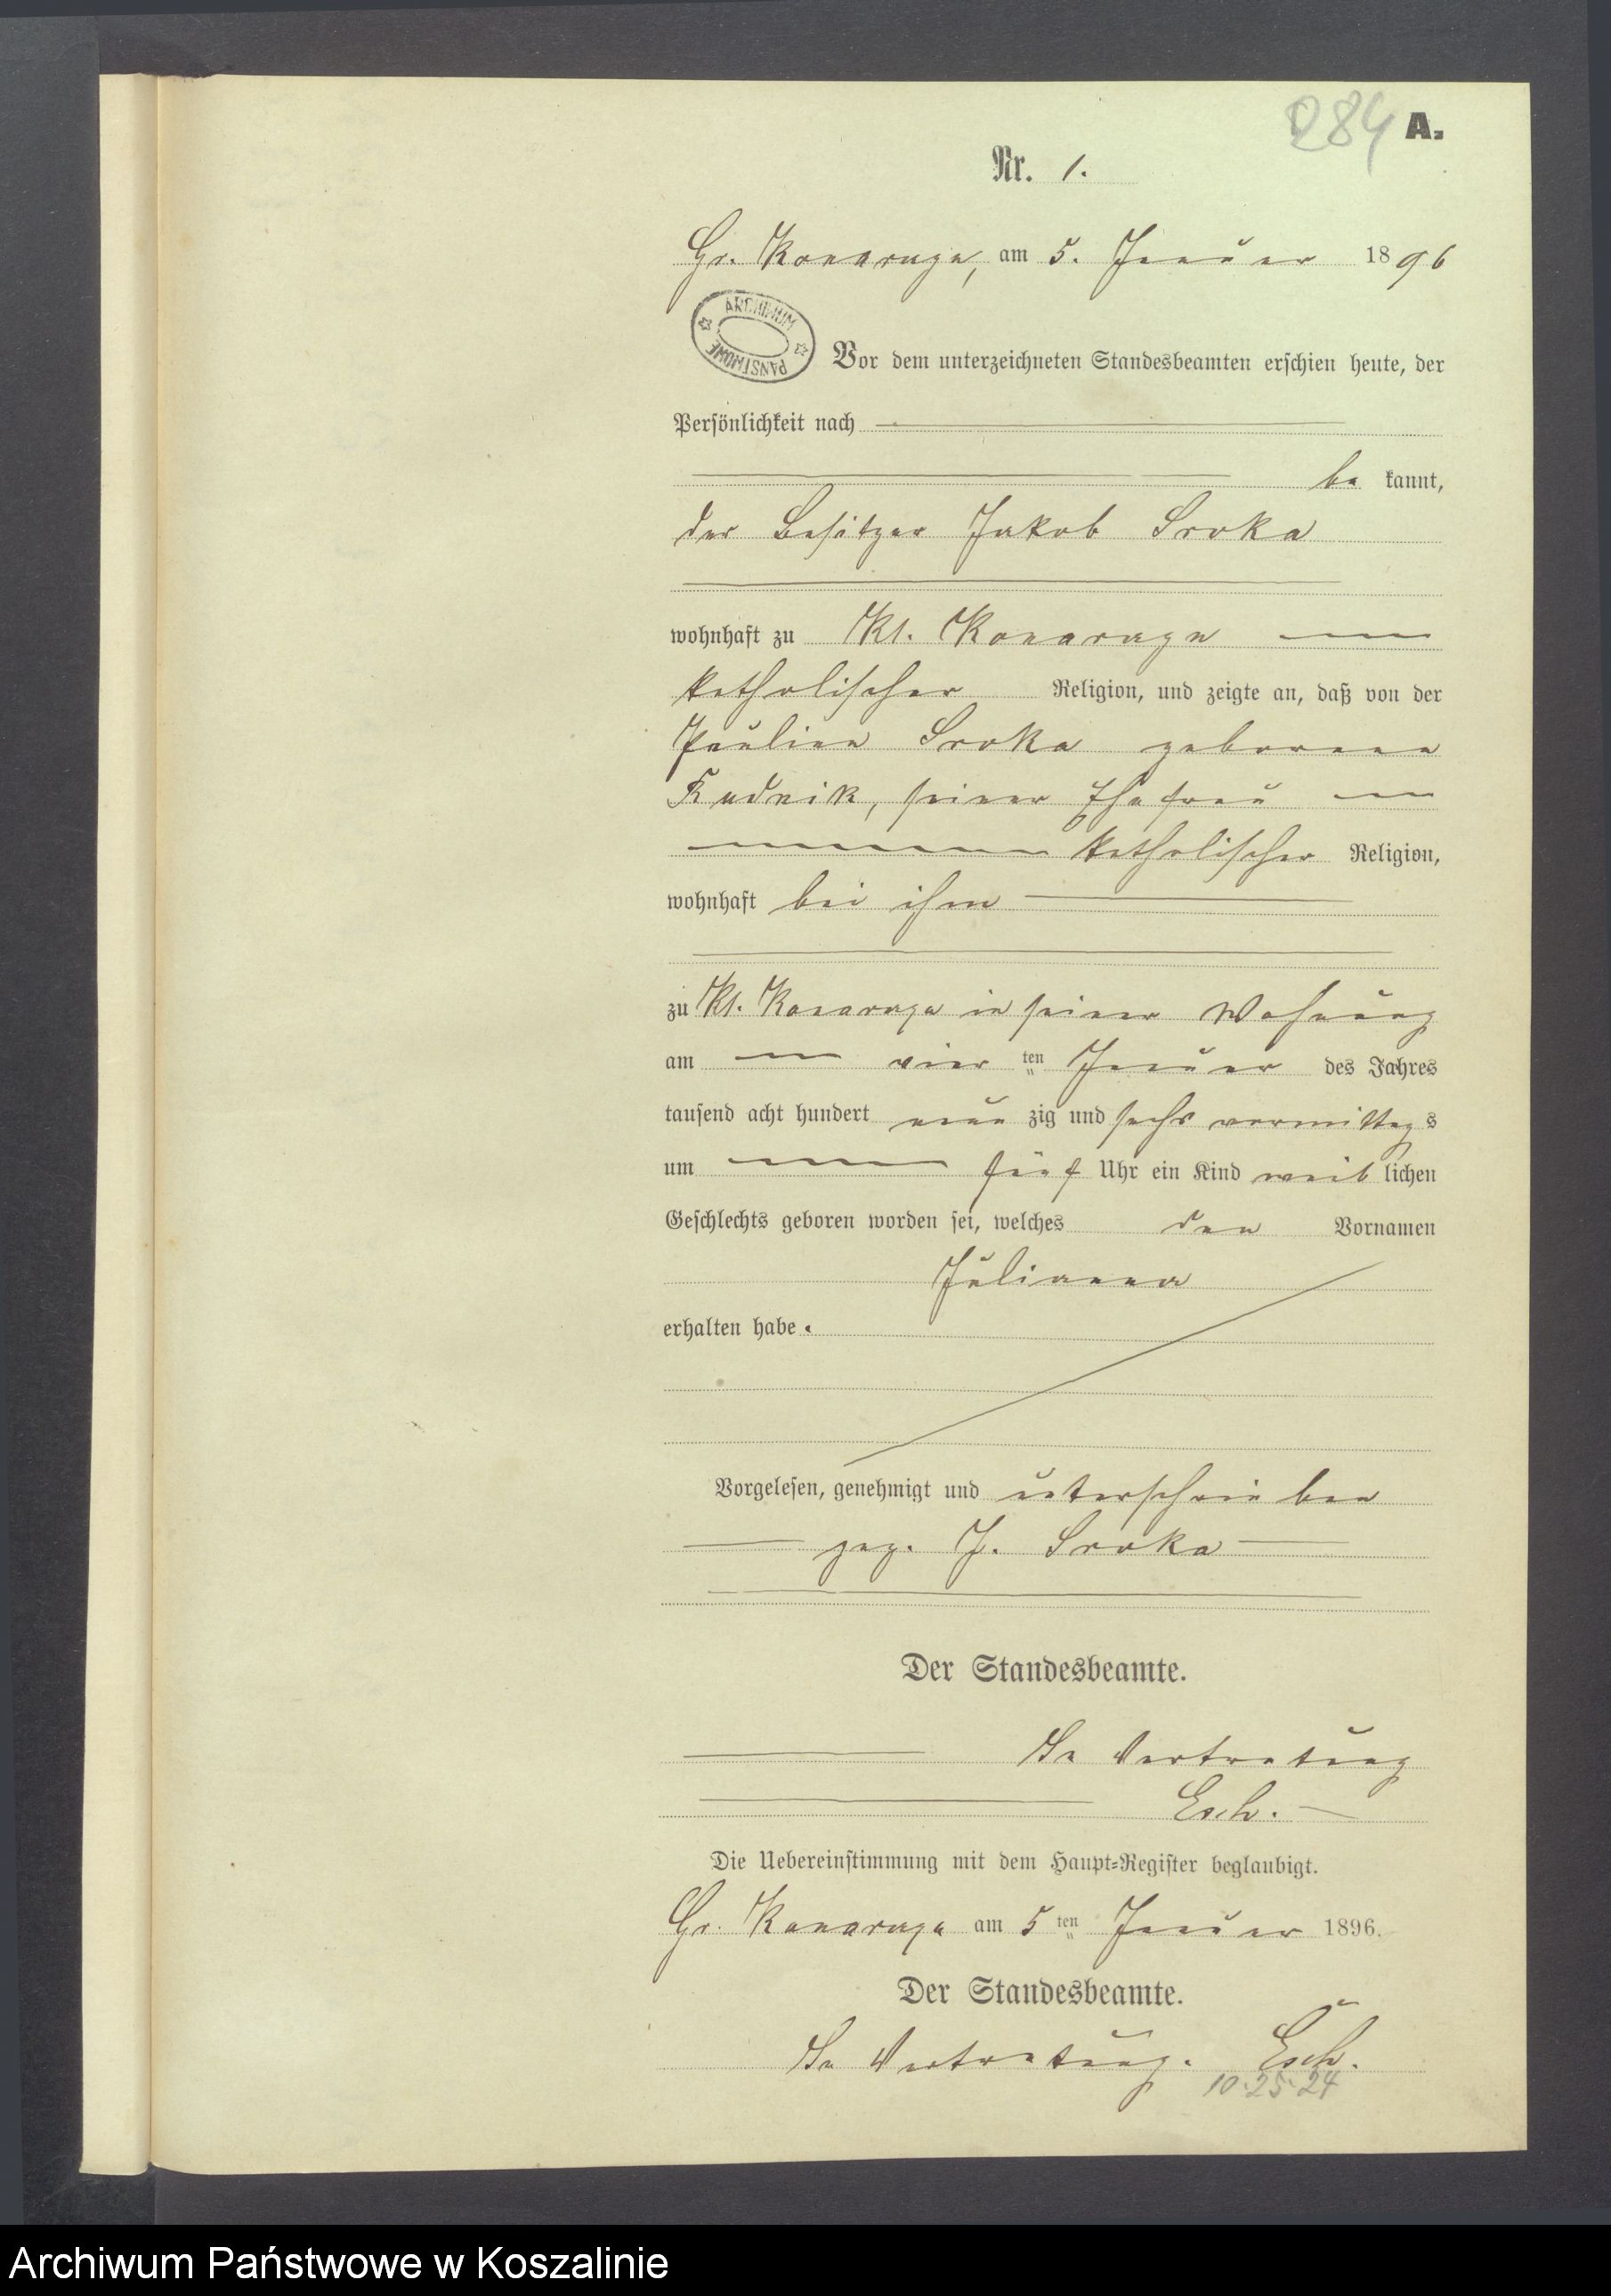 284 A.
Nr. 1.
Gr. Konarczyn, am 5. Januar 1896
ARCHIWUM PAŃSTWOWE
Vor dem unterzeichneten Standesbeamten erschien heute, der
Persönlichkeit nach
be kannt,
der Besitzer Jakob Sroka
wohnhaft zu Kl.
katholischer Religion, und zeigte an, daß von der
Pauline Sroka geborene
Rudnik, seiner Ehefrau
katholischer Religion,
wohnhaft bei ihm
zu Kl. in seiner Wohnung
am vier ten Januar des Jahres
tausend acht hundert neun zig und sechs vormittag s
um fünf Uhr ein Kind weib lichen
Geschlechts geboren worden sei, welches den Vornamen
Julianna
erhalten habe.
Vorgelesen, genehmigt und unterschrieben
gez. J. Sroka
Der Standesbeamte.
In Vertretung
Esch.
Die Uebereinstimmung mit dem Haupt-Register beglaubigt.
Gr. am 5 ten Januar 1896.
Der Standesbeamte.
In Vertretung. Esch.
10.25.24
Archiwum Państwowe w Koszalinie